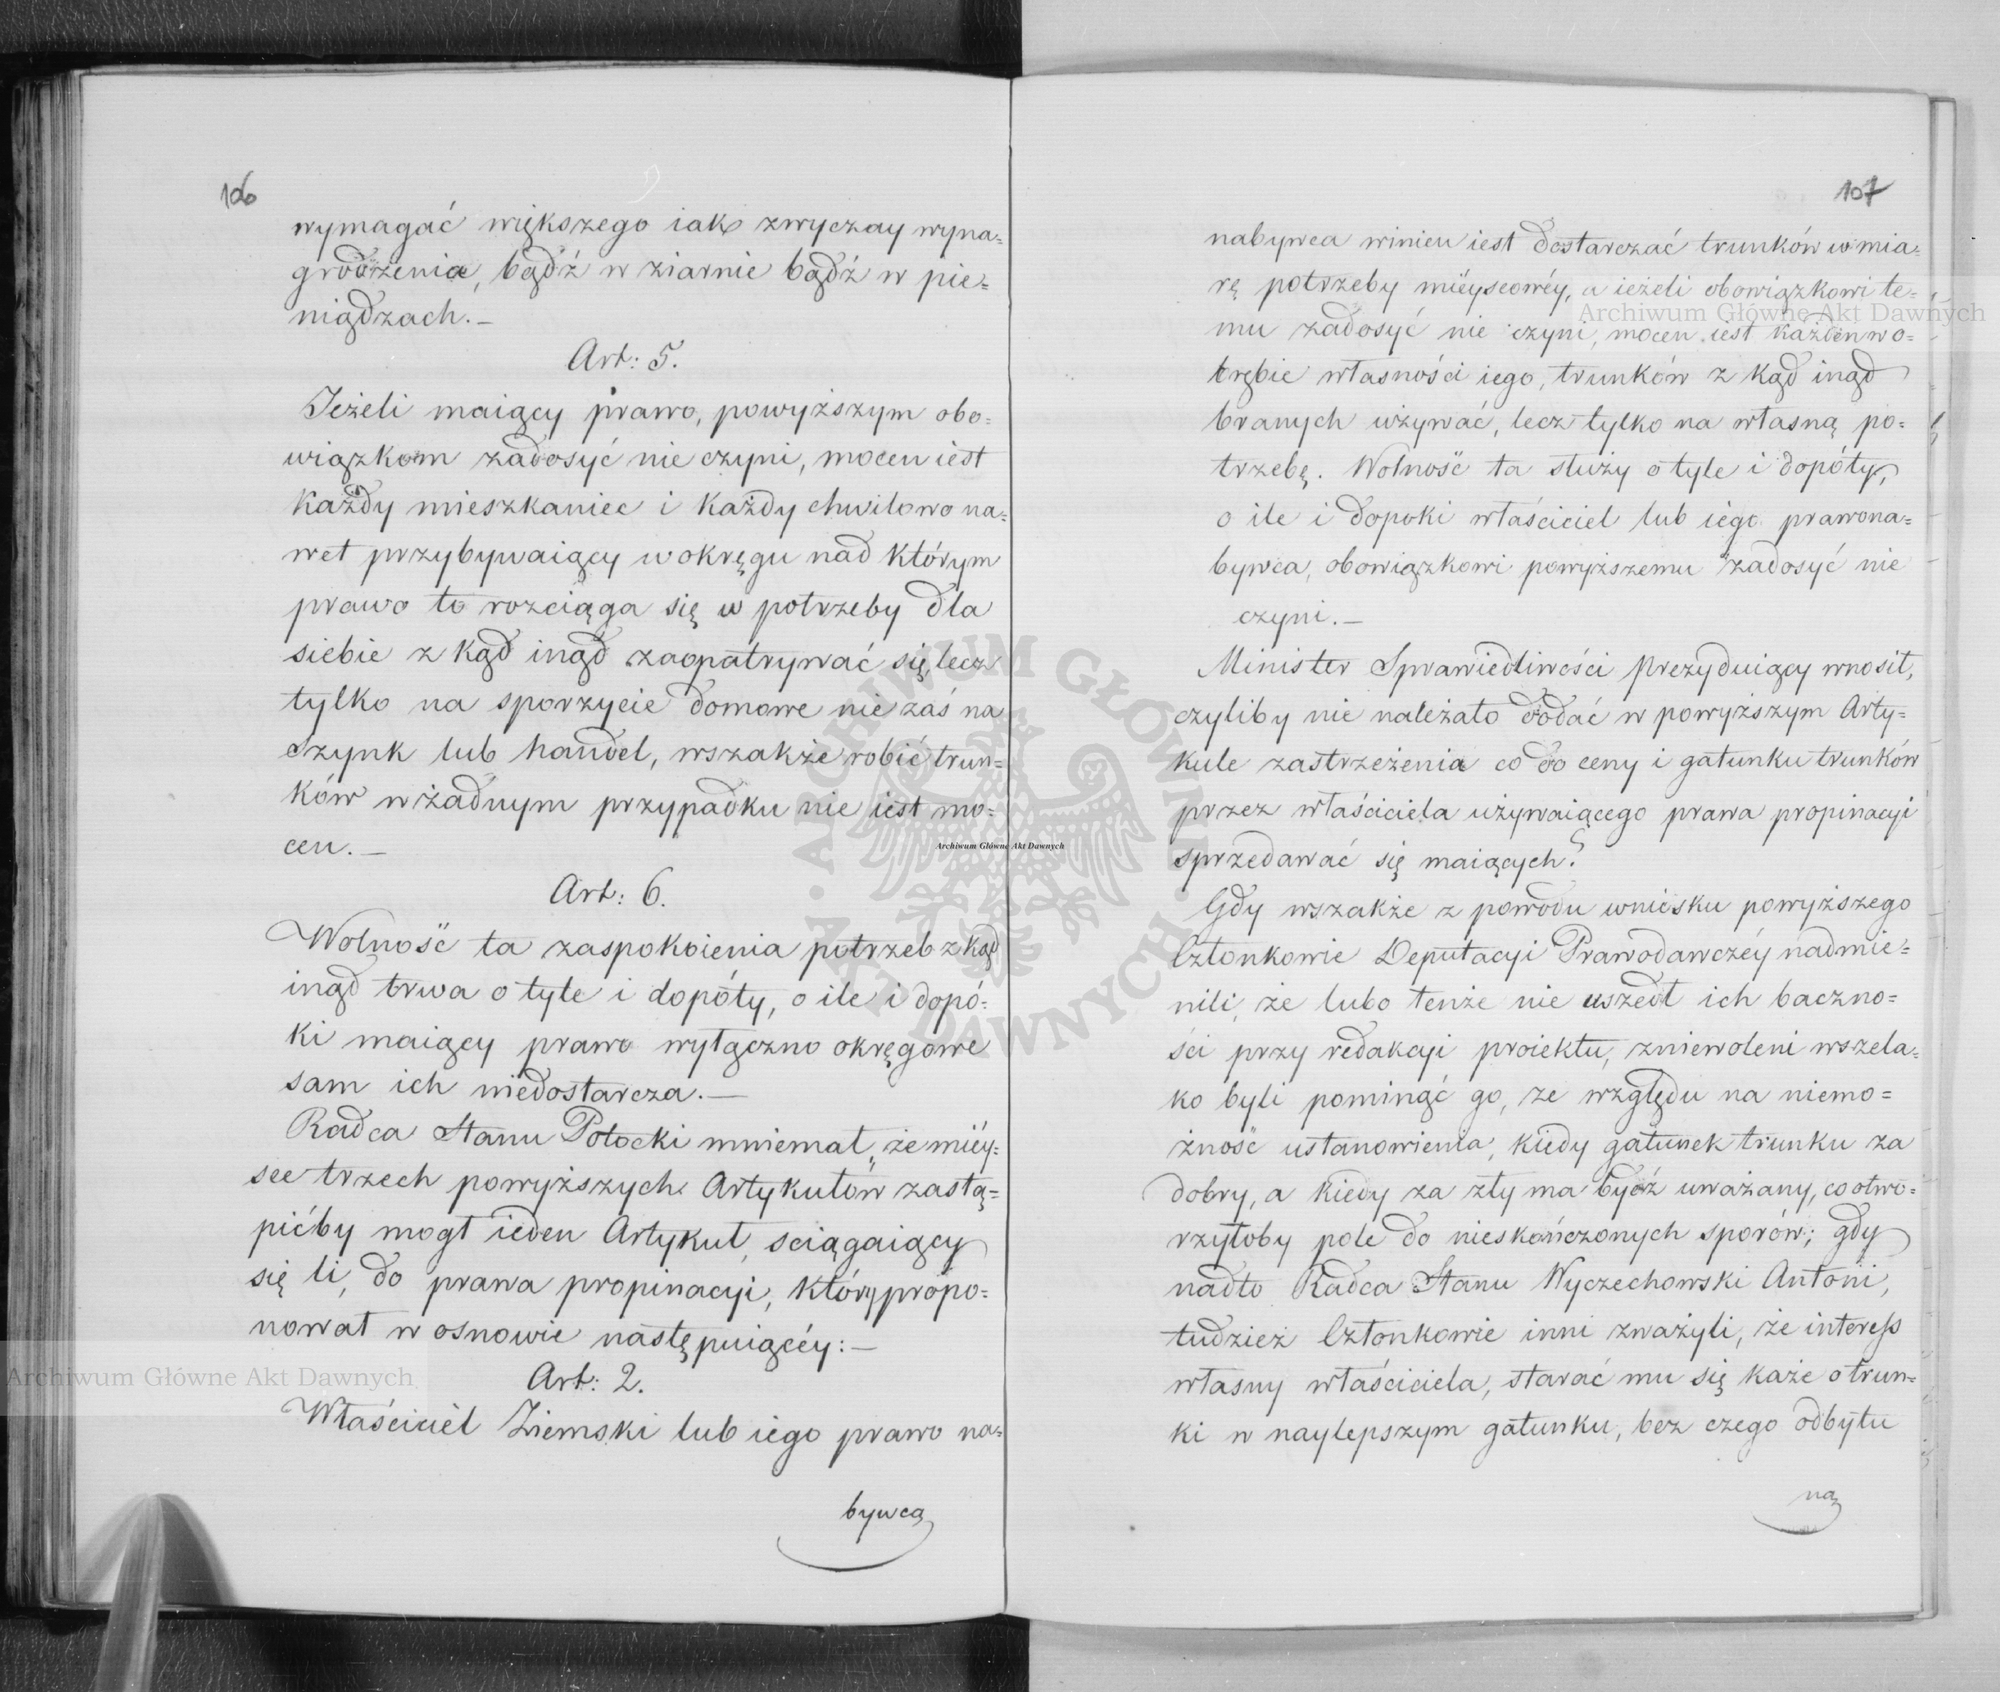 106
wymagać większego iak zwyczay wyna=
grodzenia, bądź w ziarnie bądź w pie=
niądzach.—
Art: 5.
Jeżeli maiący prawo, powyższym obo=
wiązkom zadosyć nie czyni, mocen iest
każdy mieszkaniec i każdy chwilowo na=
wet przybywaiący w okręgu nad którym
prawo to rozciąga się w potrzeby dla
siebie z kąd inąd zaopatrywać się, lecz
tylko na sporzycie domowe nie zaś na
Szynk lub handel, wszakże robić trun=
ków w żadnym przypadku nie iest mo=
cen.—
Art: 6.
Wolność ta zaspokoienia potrzeb z kąd
inąd trwa o tyle i dopóty, o ile i dopó=
ki maiący prawo wyłączno okręgowe
sam ich niedostarcza.—
Radca Stanu Potocki mniemał, że miéy=
sce trzech powyższych Artykułów zastą=
pićby mogł ieden Artykuł, sciągaiący
się li, do prawa propinacyi, który propo=
nował w osnowie następuiącéy:—
Art: 2.
Właściciel Ziemski lub iego prawo na=
bywca
107
nabywca winien iest dostarczać trunków w mia=
rę potrzeby miéyscowéy, a ieżeli obowiązkowi te=
mu zadosyć nie czyni, mocen iest każden w o=
brębie własności iego, trunków z kąd inąd
branych używać, lecz tylko na własną po=
trzebę. Wolność ta służy o tyle i dopóty,
o ile i dopoki właściciel lub iego prawona=
bywca, obowiązkowi powyższemu zadosyć nie
czyni.—
Minister Sprawiedliwości prezyduiący wnosił,
czyliby nie należało dodać w powyższym Arty=
kule zastrzeżenia co do ceny i gatunku trunków
przez właściciela używaiącego prawa propinacyi
sprzedawać się maiących?
Gdy wszakże z powodu wniosku powyższego
Członkowie Deputacyi Prawodawczéy nadmie=
nili, że lubo tenże nie uszedł ich baczno=
ści przy redakcyi proiektu, zniewoleni wszela=
ko byli pominąć go, ze względu na niemo=
żność ustanowienia, kiedy gatunek trunku za
dobry, a kiedy za zły ma bydź uważany, co otwo=
rzyłoby pole do nieskończonych sporów; gdy
nadto Radca Stanu Wyczechowski Antoni,
tudzież Członkowie inni zważyli, że interess
własny właściciela, starać mu się każe o trun=
ki w naylepszym gatunku, bez czego odbytu
na
Archiwum Główne Akt Dawnych
Archiwum Główne Akt Dawnych
Archiwum Główne Akt Dawnych
ARCHIWUM GŁÓWNE AKT DAWNYCH